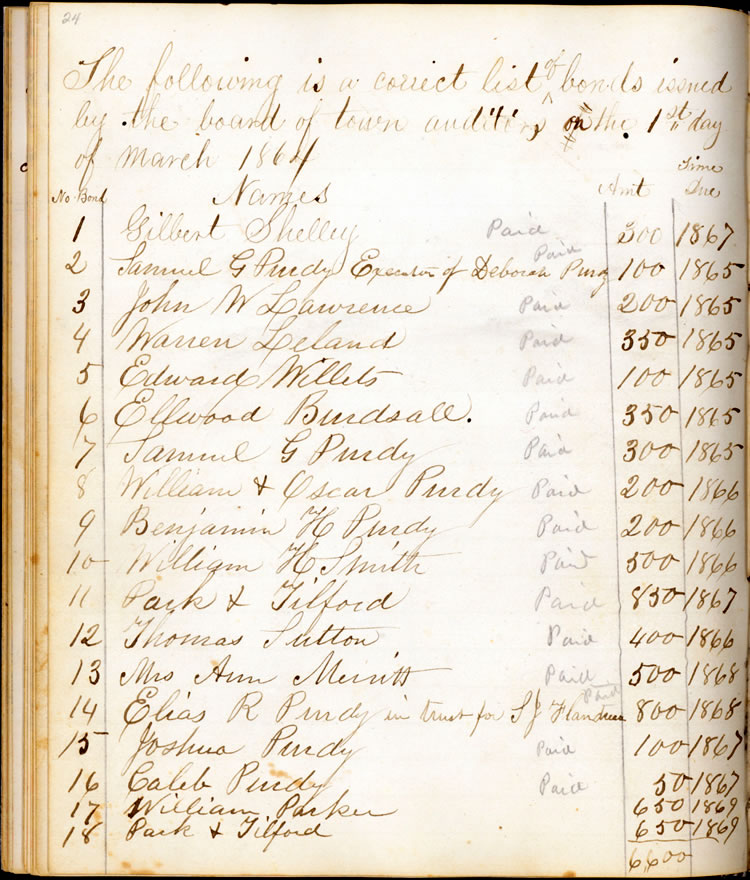 24
The following is a correct list of bonds issued
by the board of town auditors on the 1st day
of march 1864
No. Bond Names Amt Time Due
1 Gilbert Shelley Paid 300 1867
2 Samuel G Purdy Executor of Deborah Purdy Paid 100 1865
3 John W Lawrence Paid 200 1865
4 Warren Leland Paid 350 1865
5 Edward Willets Paid 100 1865
6 Ellwood Burdsall. Paid 350 1865
7 Samuel G Purdy Paid 300 1865
8 William & Oscar Purdy Paid 200 1866
9 Benjamin H Purdy Paid 200 1866
10 William H Smith Paid 500 1866
11 Park & Tilford Paid 850 1867
12 Thomas Sutton Paid 400 1866
13 Mrs Ann Merritt Paid 500 1868
14 Elias R Purdy in trust for S J Flandreau Paid 800 1868
15 Joshua Purdy Paid 100 1867
16 Caleb Purdy Paid 50 1867
17 William Parker 650 1869
18 Park & Tilford 650 1869
6600